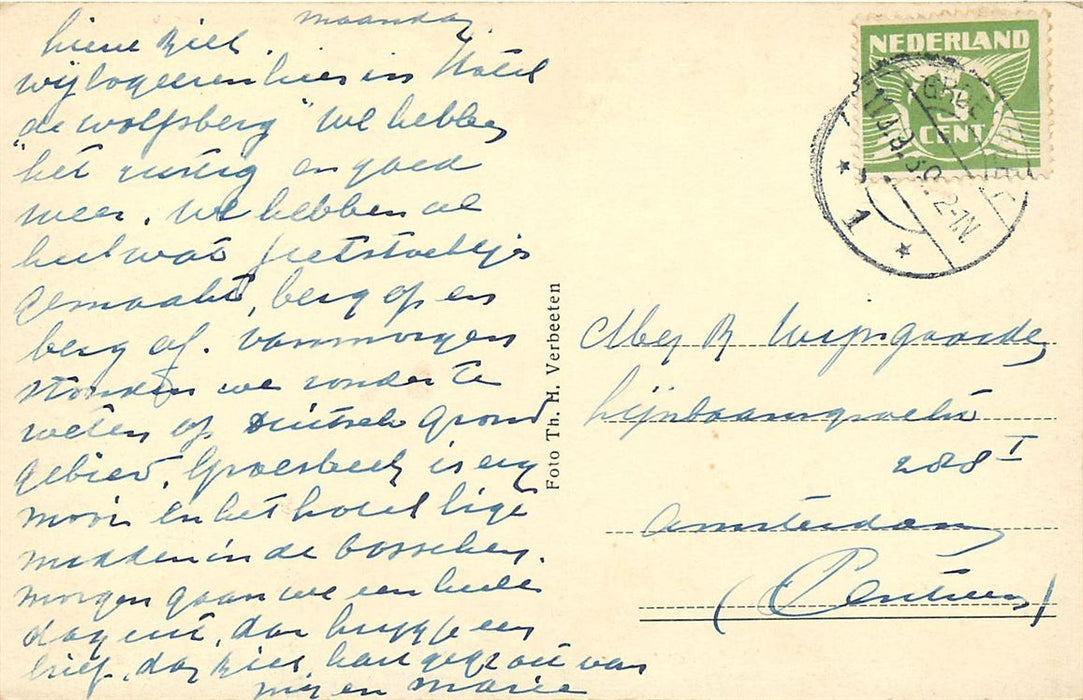 maandag
lieve Riet.
wij logeeren hier in Hotel
"de wolfsberg" We hebben
het rustig en goed
weer. We hebben al
heel wat fietstochtjes
gemaakt, berg op en
berg af. Vanmorgen
stonden we zonder te
weten op Duitsch grond
gebied. Groesbeek is erg
mooi en het hotel ligt
midden in de bosschen.
morgen gaan we een heele
dag uit, dan krijg je een
brief. dag Riet, hart. gegroet van
mij en Marie
Foto Th. H. Verbeeten
NEDERLAND
CENT
1
2-N
Mej R Wijngaarden
Lijnbaansgracht
288 I
Amsterdam
(Centrum)